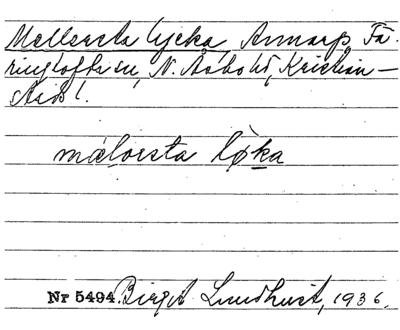 Mellersta lycka, Annarp, Fä-
ringtofta sn, N. Åsbo hd, Kristian-
stads l.
mælorsta løka
Nr 5494. Birgit Lundkvist, 1936.